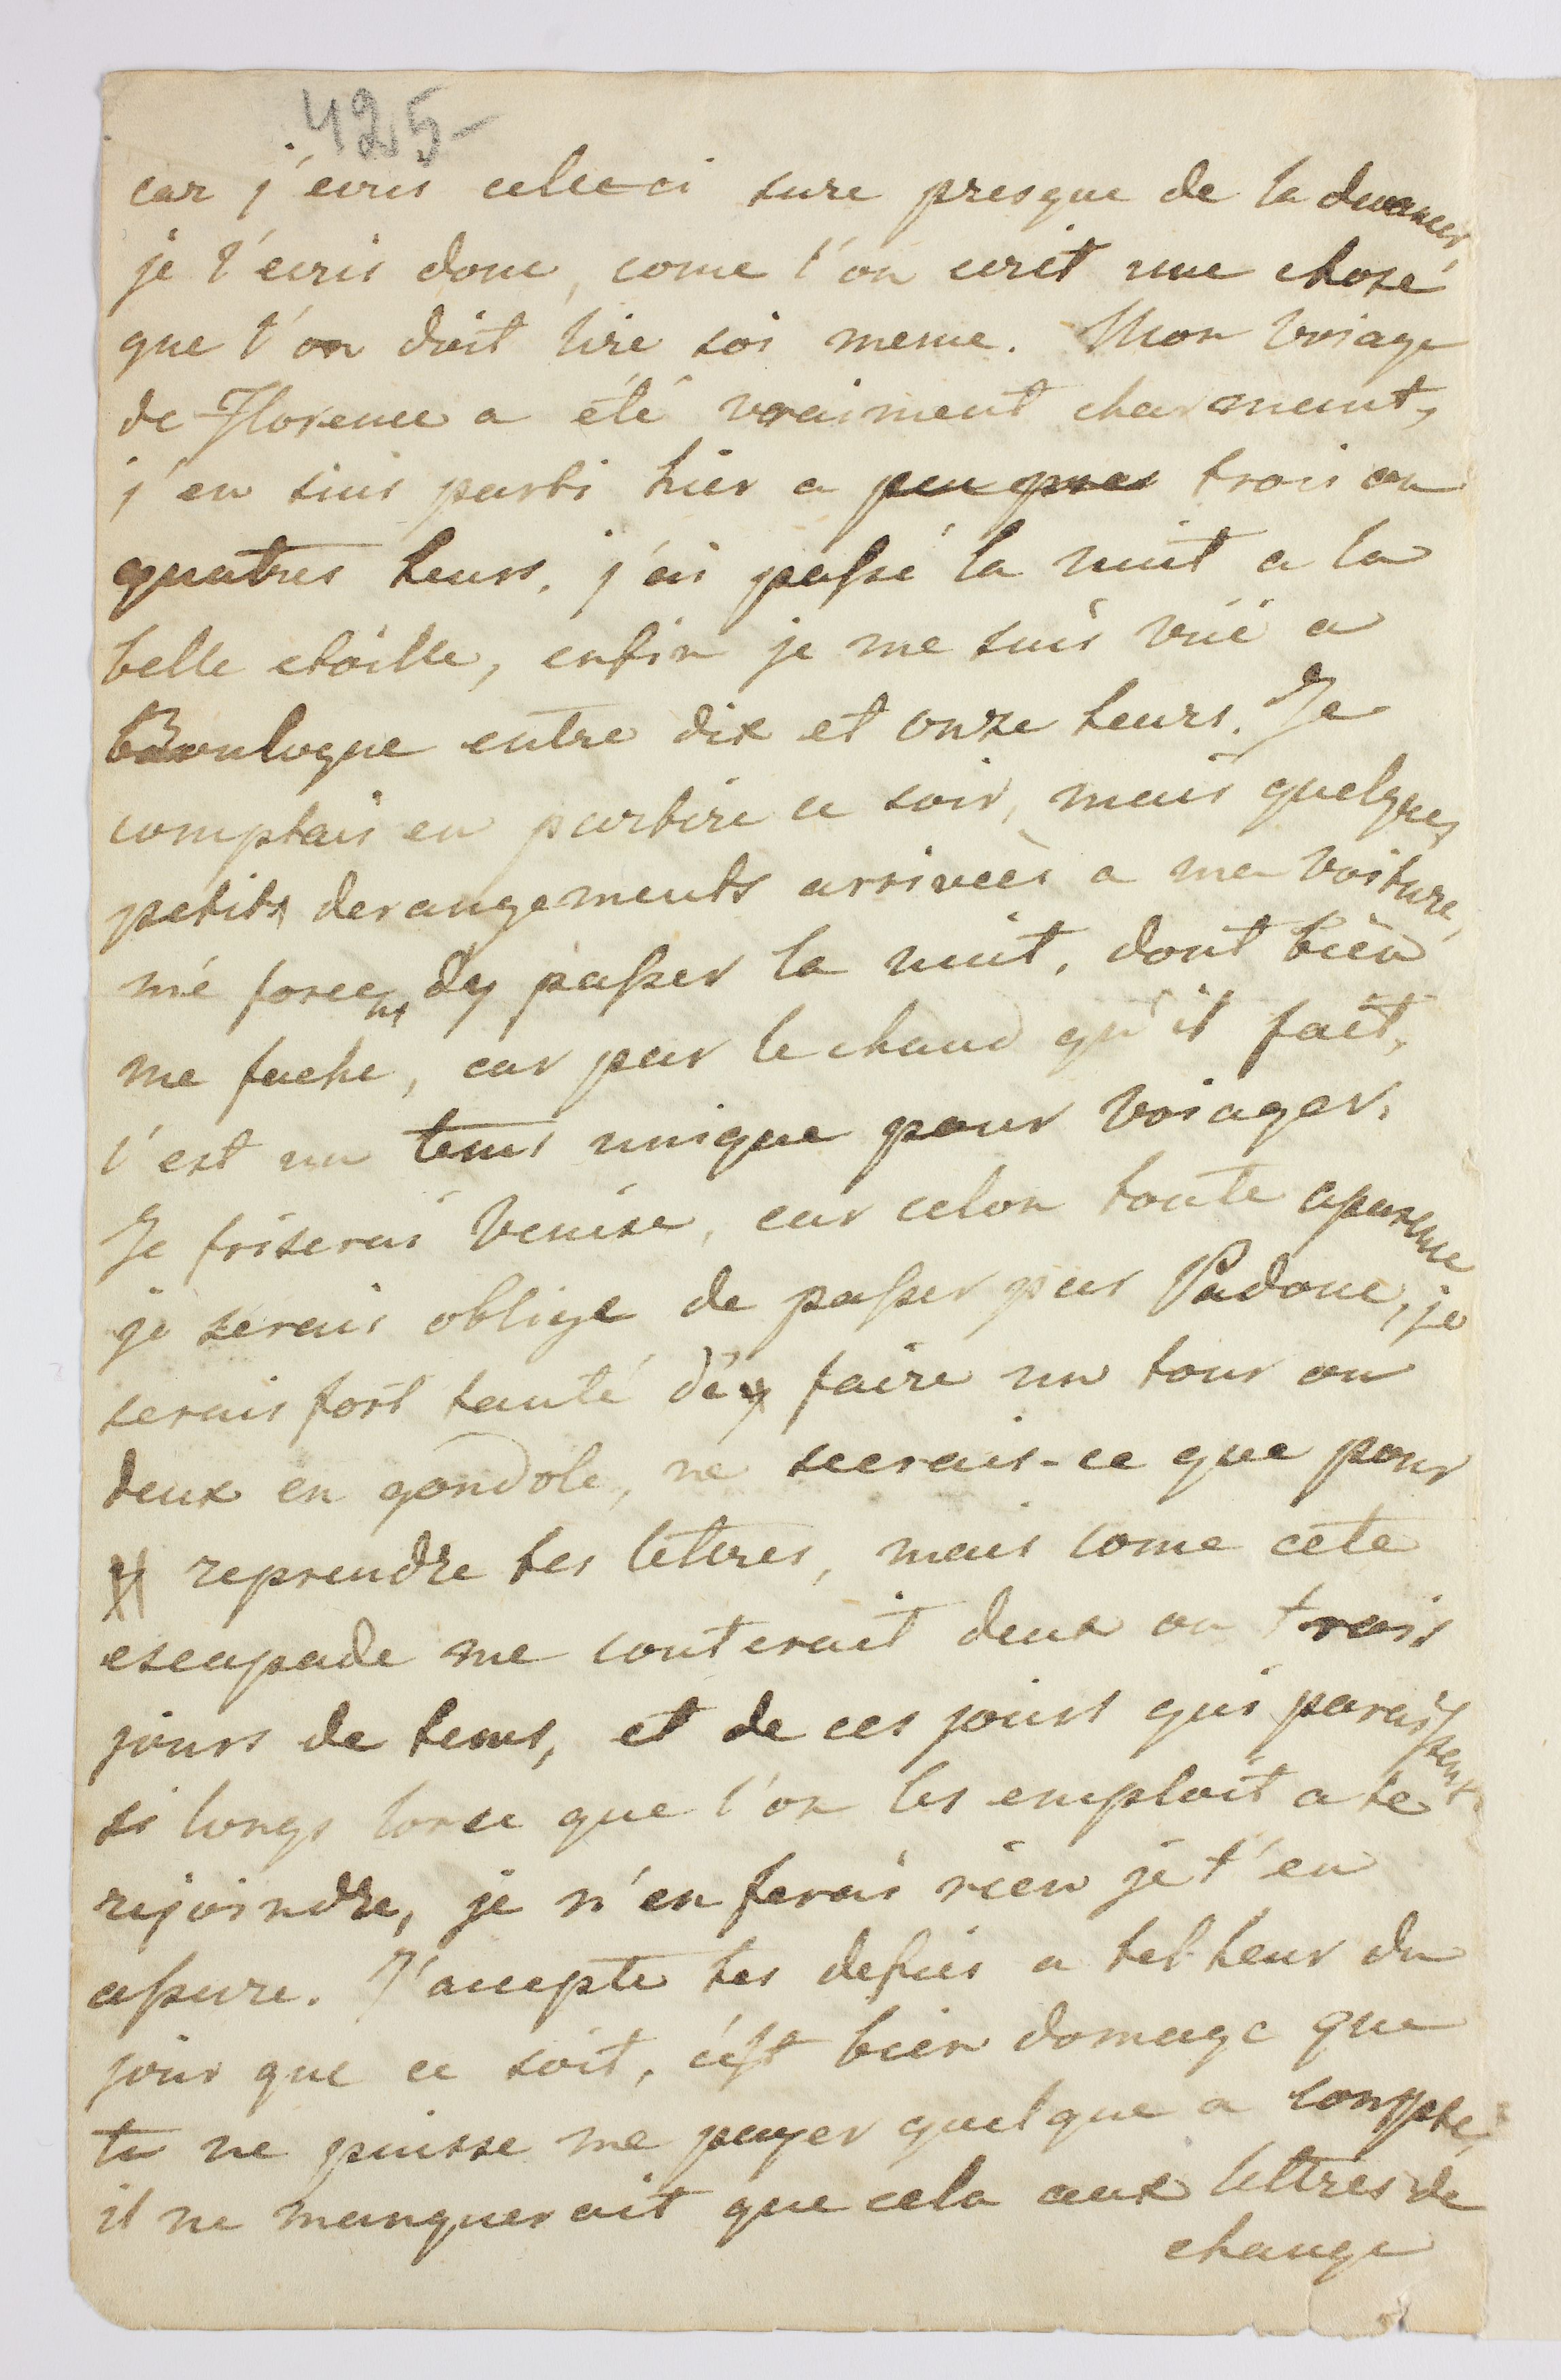 425-
car j'ecris celleci sure presque de la devancer,
je l'ecris donc, come l'on ecrit une chose
que l'on doit lire soi meme. Mon voiage
de Florence a été vraiment charmant,
j'en suis parti hier a peu pres trois ou
quatres heurs, j'ai passé la nuit a la
belle etoille, enfin je me suis vüe a
Boulogne entre dix et onze heurs. Je
comptais en partire ce soir, mais quelques
petits derangements arriveès a ma voiture,
me forcent d'y passer la nuit, dont bien
me fache, car par le chaud qu'il fait,
c'est un tems unique pour voiager.
Je friserai Venise, car celon toute aparence
je serais oblige de passer par Padoue, je
serais fort tanté d'y faire un tour ou
deux en gondole, ne seerais-ce que pour
reprendre tes lettres, mais come cete
escapade me couterait deux ou trois
jours de tems, et de ces jours qui paraissent
si longs lorsce que l'on les emploit a te
rejoindre, je n'en ferai rien je t'en
assure. J'accepte tes defies a tel heur du
jour que ce soit, c'est bien domage que
tu ne puisse me payer quelque a compte,
il ne manquerait que cela aux lettres de
change